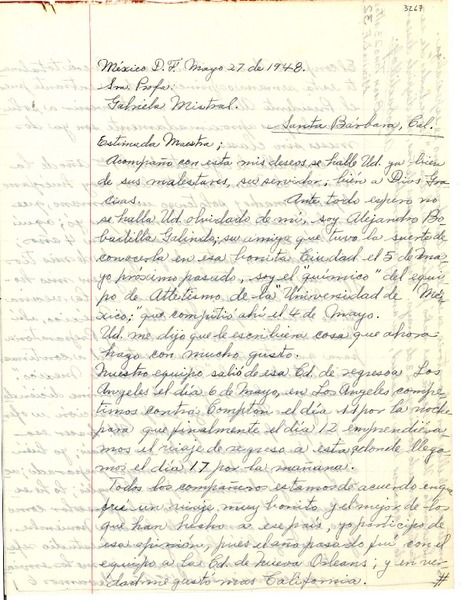 3267
México D.F. Mayo 27 de 1948.
Sra. Profa.
Gabriela Mistral.
Santa Bárbara, Cal.
Estimada Maestra;
Acompaño con esta mis deseos se halle Ud. ya bien
de sus malestares, su servidor; bien a Dios Gra-
cias. Ante todo espero no
se halla Ud. olvidado de mi, soy Alejandro Bo-
badilla Galindo; su amigo que tuvo la suerte de
conocerla en esa bonita Ciudad el 5 de Ma-
yo próximo pasado, soy el "químico" del equi-
po de Atletismo de la "Universidad de Méx-
ico; que compitió ahí el 4 de Mayo.
Ud. me dijo que le escribiera cosa que ahora
hago con mucho gusto.
Nuestro equipo salió de esa Cd. de regreso a Los
Angeles el día 6 de Mayo, en Los Angeles compe-
timos contra Compton el día 11 por la noche
para que finalmente el día 12 emprendiéra-
mos el viaje de regreso a esta donde llega-
mos el día 17 por la mañana.
Todos los compañeros estamos de acuerdo en que
fué un viaje muy bonito y el mejor de lo
que han hecho a ese país, yo participo de
esa opinión, pues el año pasado fuí con el
equipo a las Cd. de Nueva Orleans; y en ver-
dad me gustó mas California.